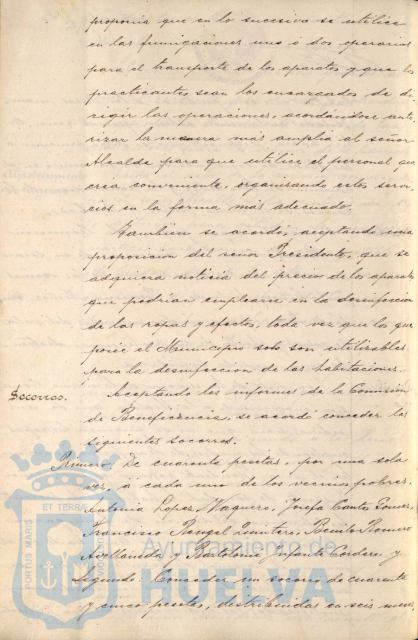 proponia que en lo sucesivo se utilice
en las fumigaciones uno ó dos operarios
para el transporte de los aparatos y que los
practicantes sean los encargados de di
rigir las operaciones, acordándose auto
rizar la manera mas amplia al señor
Alcalde para que utilice el personal que
crea conveniente, organizando estos servi
cios en la forma más adecuada.
Tambien se acordó, aceptando una
proposicion del señor Presidente, que se
adquiera noticia del precio de los aparatos
que podrian emplearse en la desinfeccion
de las ropas y efectos, toda vez que los que
posee el Municipio solo son utilizables
para la desinfeccion de las habitaciones.
Socorros.
Aceptando los informes de la Comision
de Beneficencia, se acordó conceder los
siguientes socorros.
Primero. De cuarenta pesetas, por una sola
vez, á cada uno de los vecinos pobres
Antonia Lopez Vaquero, Josefa Canto Gomez,
Francisco Rangel Quintero, Benito Romero
Avellaneda y Cordero y
Segundo. Conceder un socorro de cuarenta
y cinco pesetas, distribuidas en seis meses
PORTUS MARIS ET TERRAE CUSTODIA
Ayuntamiento de
HUELVA